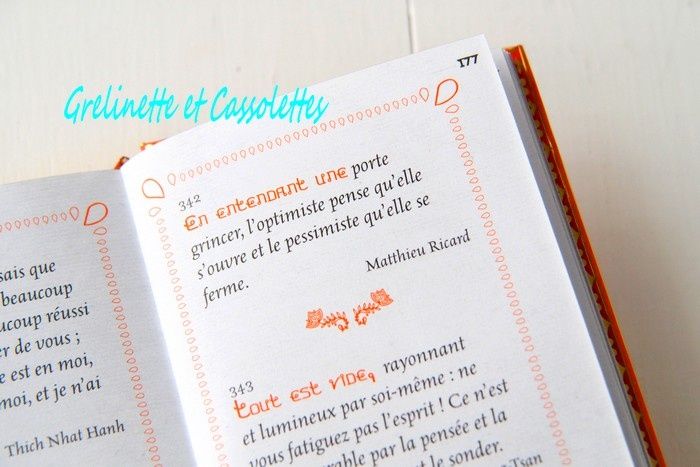 Grelinette et Cassolettes
177
sais que
beaucoup
ucoup réussi
er de vous ;
e est en moi,
moi, et je n'ai
Thich Nhat Hanh
342
En entendant une porte
grincer, l'optimiste pense qu'elle
s'ouvre et le pessimiste qu'elle se
ferme.
Matthieu Ricard
343
Tout est vide, rayonnant
et lumineux par soi-même : ne
vous fatiguez pas l'esprit ! Ce n'est
rable par la pensée et la
et le sonder.
Tsan